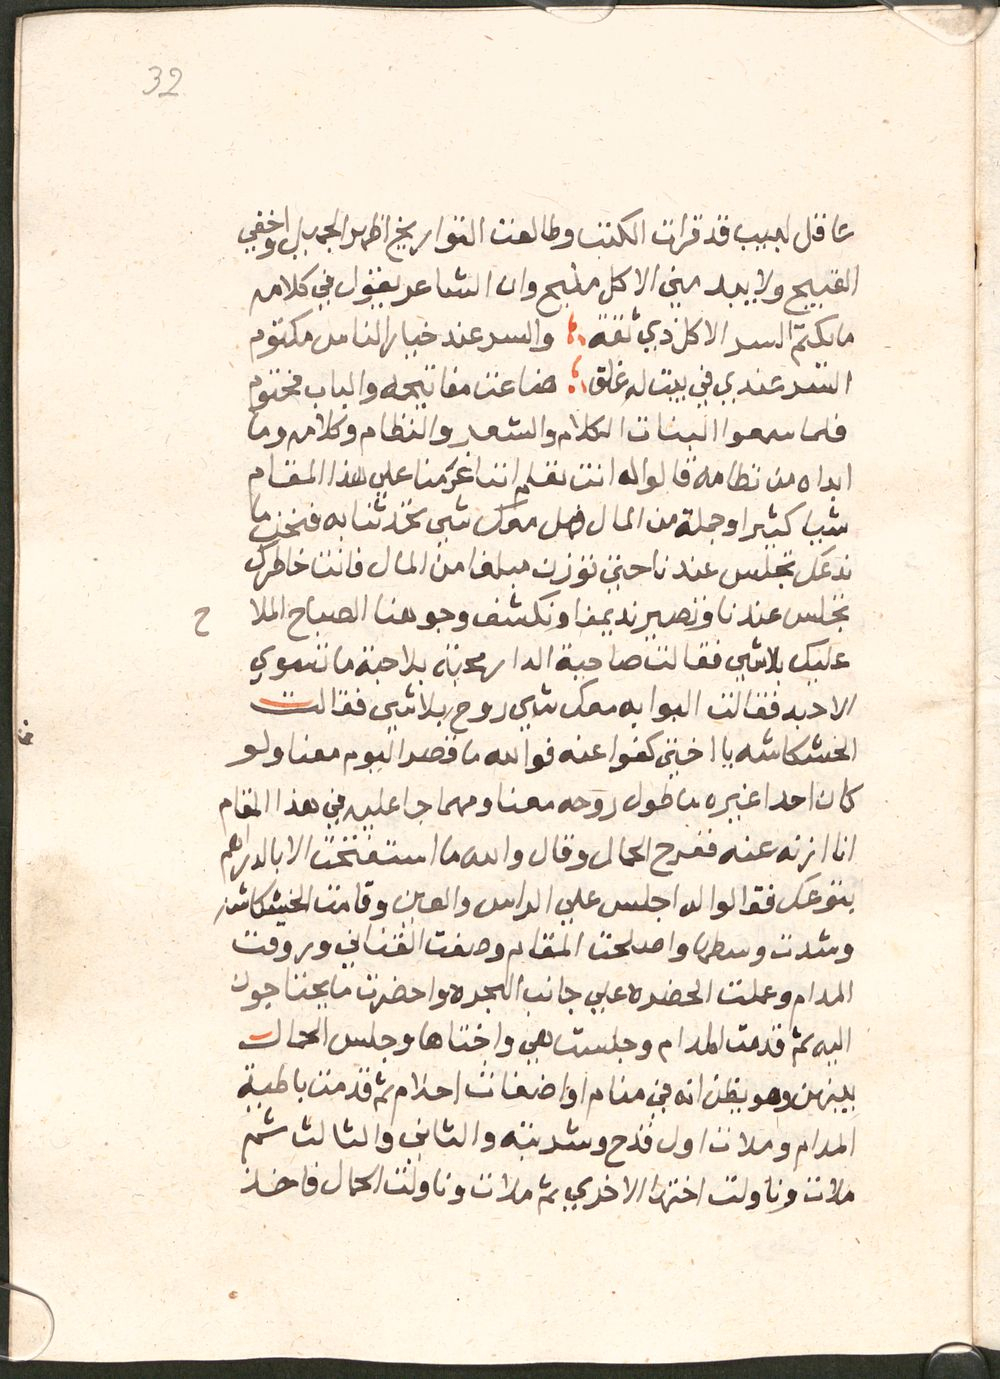 32
عاقل لبيب قد قرات الكتب وطالعت التواريخ اظهر الجميل واخفي
القبيح ولا يبد مني الا كل مليح وان الشاعر يقول في كلامه
ما يكتم السر الا كل ذي ثقة والسر عند خيار الناس مكتوم
السر عندي في بيت له غلق ضاعت مفاتيحه والباب مختوم
فلما سمعوا البنات الكلام والشعر والنظام وكلامه وما
ابداه من نظامه قالوا له انت تعلم اننا غرمنا علي هذا المقام
شيا كثيرا وجملة من المال هل معك شي تحدثنا به فنحن ما
ندعك تجلس عندنا حتي توزن مبلغا من المال فانت خاطرك
تجلس عندنا وتصير نديمنا ونكشف وجوهنا الصباح الملا
ح
عليك بلاشي فقالت صاحبة الدار محبة بلا حبة ما تسوي
الا دبه فقالت البوابه معك شي روح بلاشي فقالت
الخشكاشه يا اختي كفوا عنه فوالله ما قصر اليوم معنا ولو
كان احدا غيره ما طول روحه معنا ومهما جا عليه في هذا المقام
انا ازنه عنه ففرح الحمال وقال والله ما استفتحت الا بالدراهم
بتوعك فقالوا له اجلس علي الراس والعين وقامت الخشكاشه
وشدت وسطها واصلحت المقام وصفت القناني وروقت
المدام وعملت الحضره علي جانب البحره واحضرت ما يحتاجون
اليه ثم قدمت المدام وجلست هي واختاها وجلس الحمال
بينهن وهو يظن انه في منام او اضغاث احلام ثم قدمت باطية
المدام وملات اول قدح وشربته والثاني والثالث ثم
ملات وناولت اختها الاخري ثم ملات وناولت الحمال فاخذ